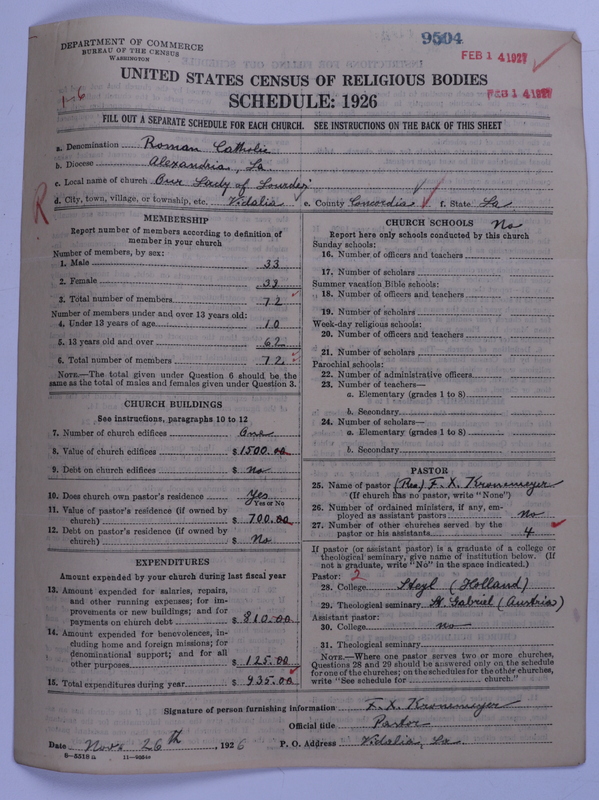 DEPARTMENT OF COMMERCE
BUREAU OF THE CENSUS
WASHINGTON
9504
FEB 14 1927
FEB 14 1927
1-6
UNITED STATES CENSUS OF RELIGIOUS BODIES
SCHEDULE: 1926
FILL OUT A SEPARATE SCHEDULE FOR EACH CHURCH. SEE INSTRUCTIONS ON THE BACK OF THIS SHEET
a. Denomination Roman Catholic
b. Diocese Alexandria, La
c. Local name of church Our Lady of Lourdes
d. City, town, village, or township, etc. Vidalia e. County Concordia f. State La
R
MEMBERSHIP
Report number of members according to definition of
member in your church
Number of members, by sex:
1. Male 33
2. Female 39
3. Total number of members 72
Number of members under and over 13 years old:
4. Under 13 years of age 10
5. 13 years old and over 62
6. Total number of members 72
NOTE.—The total given under Question 6 should be the
same as the total of males and females given under Question 3.
CHURCH BUILDINGS
See instructions, paragraphs 10 to 12
7. Number of church edifices One
8. Value of church edifices $ 1500.00
9. Debt on church edifices $ No
10. Does church own pastor's residence Yes
Yes or No
11. Value of pastor's residence (if owned by
church) $ 700.00
12. Debt on pastor's residence (if owned by
church) $ No
EXPENDITURES
Amount expended by your church during last fiscal year
13. Amount expended for salaries, repairs,
and other running expenses; for im-
provements or new buildings; and for
payments on church debt $ 810.00
14. Amount expended for benevolences, in-
cluding home and foreign missions; for
denominational support; and for all
other purposes $ 125.00
15. Total expenditures during year $ 935.00
CHURCH SCHOOLS No
Report here only schools conducted by this church
Sunday schools:
16. Number of officers and teachers
17. Number of scholars
Summer vacation Bible schools:
18. Number of officers and teachers
19. Number of scholars
Week-day religious schools:
20. Number of officers and teachers
21. Number of scholars
Parochial schools:
22. Number of administrative officers
23. Number of teachers—
a. Elementary (grades 1 to 8)
b. Secondary
24. Number of scholars—
a. Elementary (grades 1 to 8)
b. Secondary
PASTOR
25. Name of pastor (Rev.) F. X. Kronemeyer
(If church has no pastor, write "None")
26. Number of ordained ministers, if any, em-
ployed as assistant pastors No
27. Number of other churches served by the
pastor or his assistants 4
If pastor (or assistant pastor) is a graduate of a college or
theological seminary, give name of institution below. (If
not a graduate, write "No" in the space indicated.)
Pastor: 2
28. College Steyl (Holland)
29. Theological seminary St. Gabriel (Austria)
Assistant pastor:
30. College no
31. Theological seminary
NOTE.—Where one pastor serves two or more churches,
Questions 28 and 29 should be answered only on the schedule
for one of the churches; on the schedules for the other churches,
write "See schedule for church."
Signature of person furnishing information F. X. Kronemeyer
Official title Pastor
Date Nov. 26th, 1926 P. O. Address Vidalia, La.